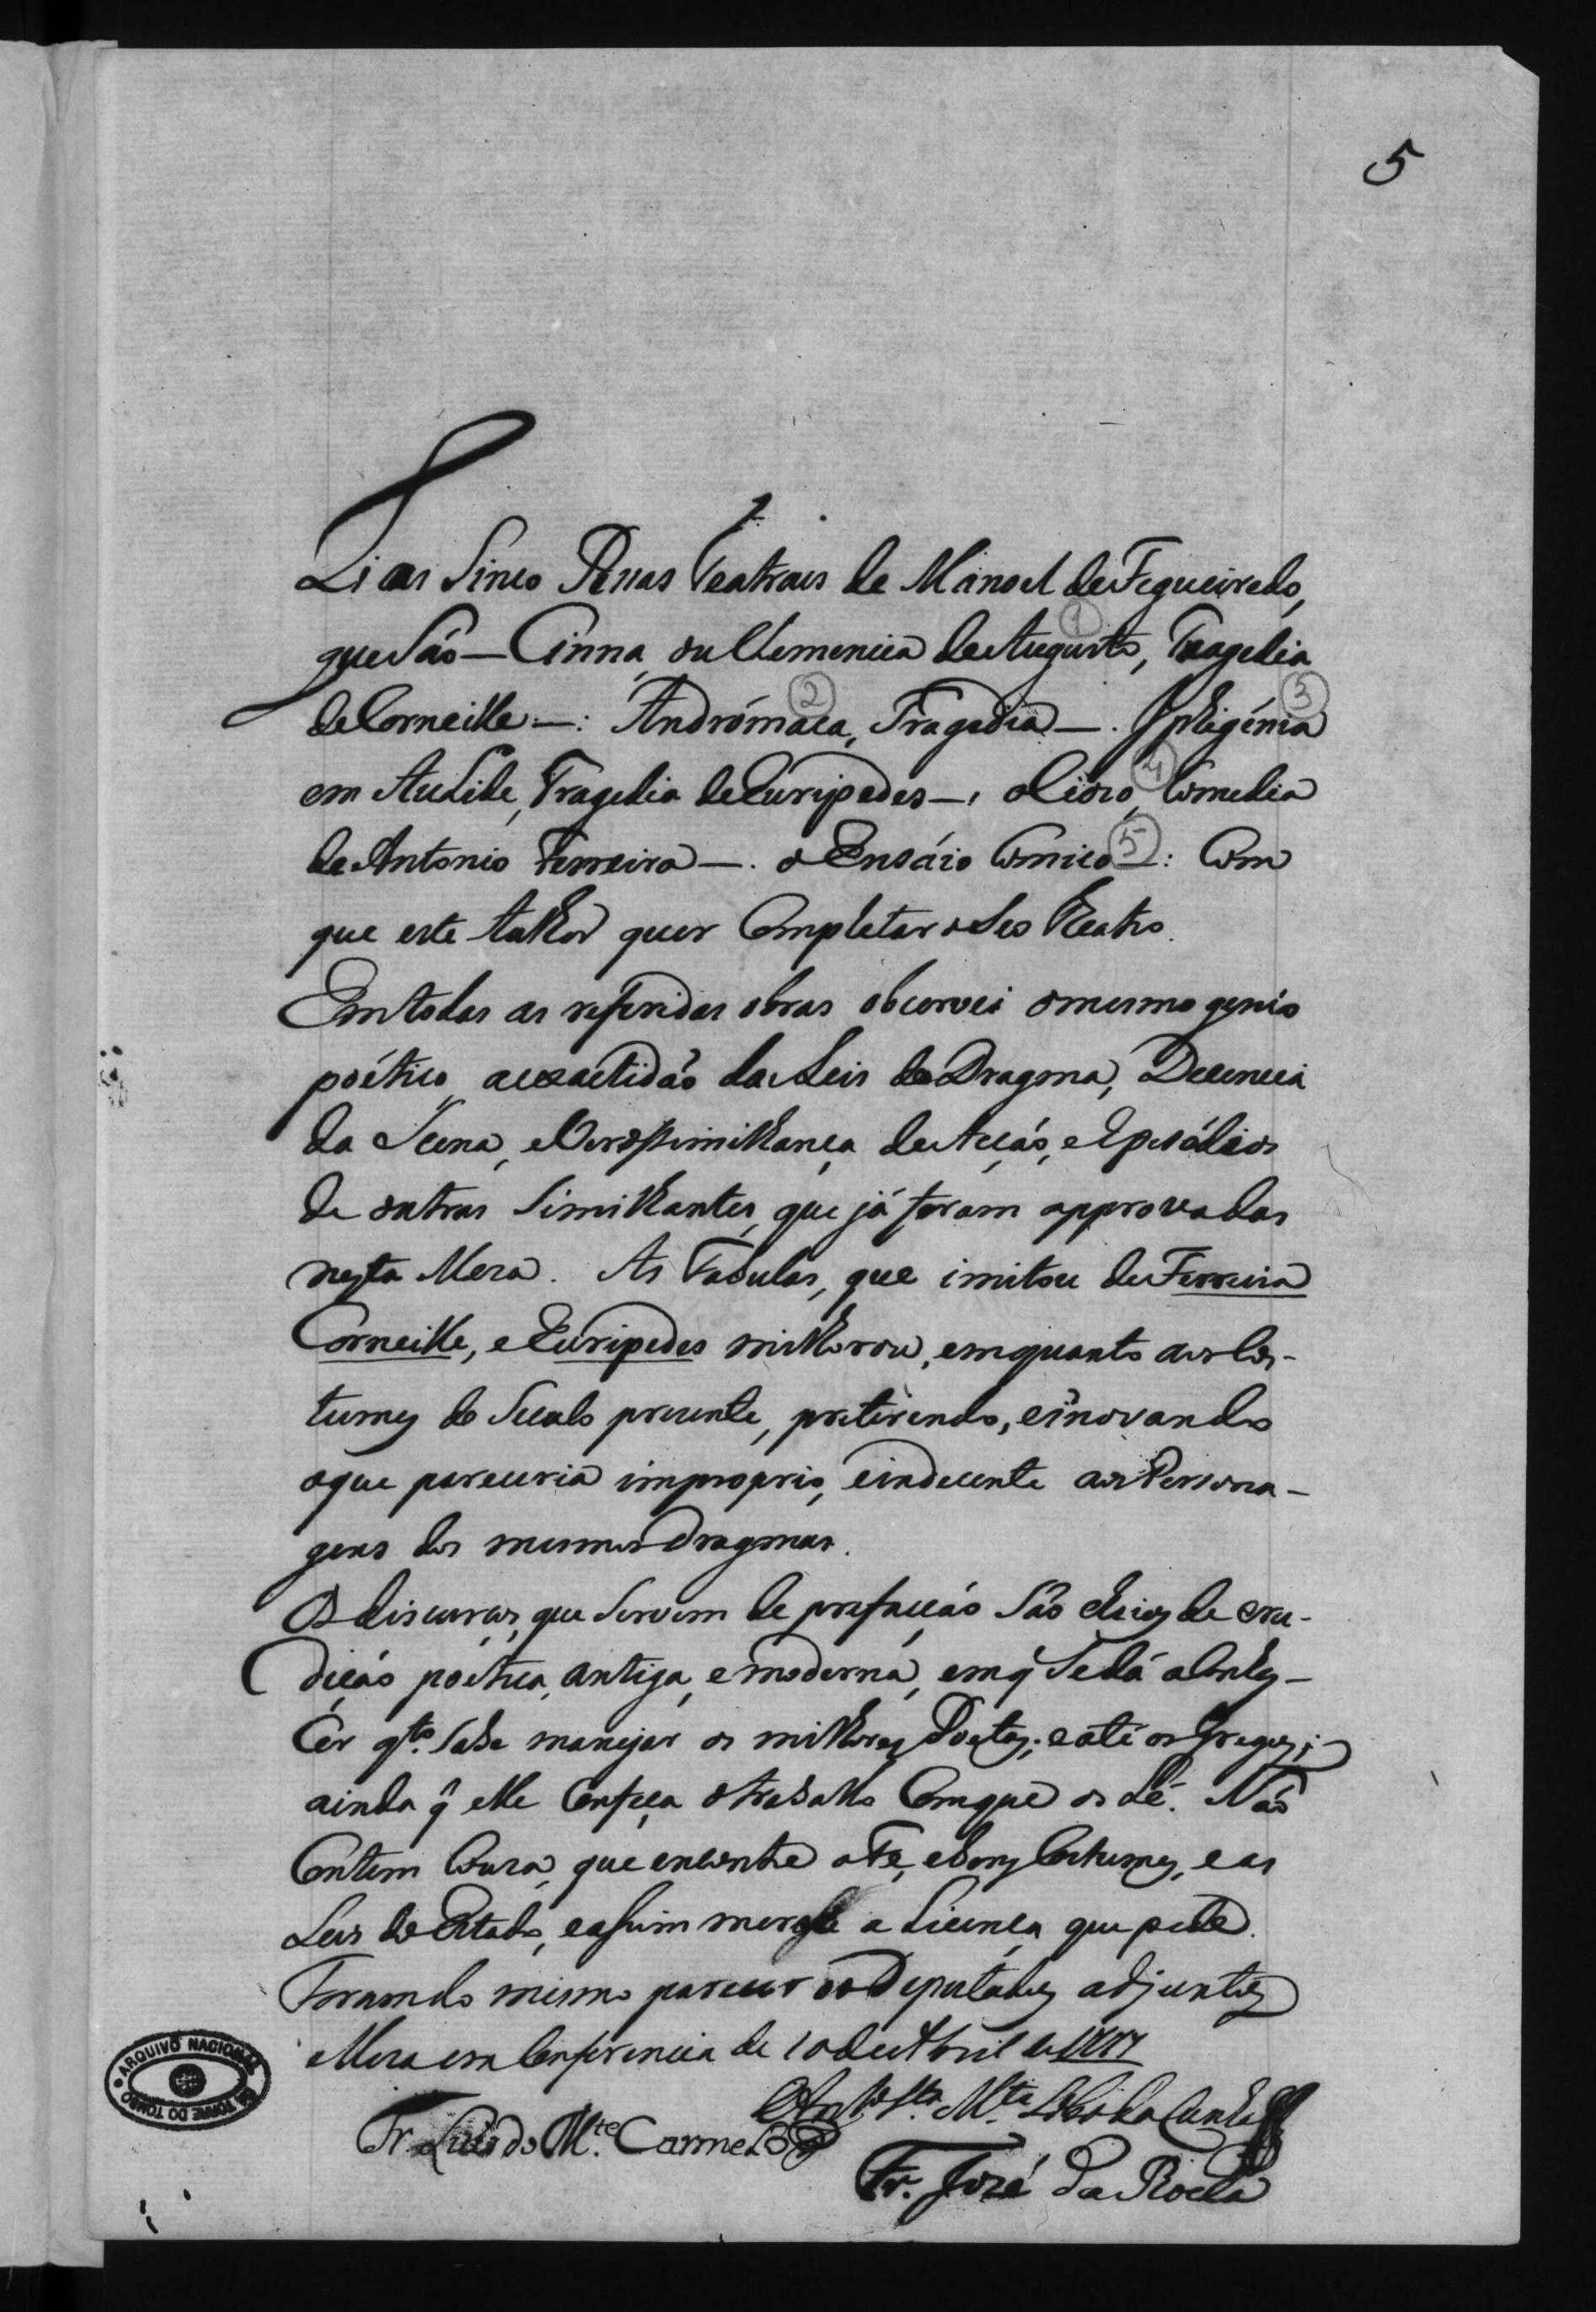 5
Li as Sinco Pessas Teatraes de Manoel de Figueiredo,
que Sáo — Cinna, ou Clemencia de Augusto, Tragedia
1
de Corneille —: Andrómaca, Tragedia —. Iphigénia
2 3
em Aulide, Tragedia de Euripedes —, o Cioso, Comedia
4
de Antonio Ferreira —. o Ensáio Comico —: Com
5
que este Author quer Completar o Seo Theatro.
Em todas as referidas obras observei o mesmo genio
poético, a exactidaõ das Leis do Dragma, Decencia
da Scena, e Verosimilhança de Acçáo, e Episódios
de outras Similhantes, que já foram approvadas
nesta Meza. As Fabulas, que imitou de Ferreira
Corneille, e Euripedes milhorou, emquanto aos Cos-
tumes do Seculo prezente, preterindo, e inovando
o que pareceria improprio, e indecente aos Persona-
gens dos mesmos Dragmas.
Os discursos, que Servem de prefacçáo Sáo cheios de eru-
diçáo poética, antiga, e moderna, em q̃ Se dá a Conhe-
cer q.to Sabe manejar os milhores Poetas; e até os Gregos;
ainda q̃ elle Confeça o trabalho Com que os Lê. Naõ
Contem Couza, que encontre a Fe, e bons Costumes, e as
Leis do Estado, e assim merece a Licença que pede.
Foram do mesmo parecer os Deputados adjuntos
Meza em Conferencia de 10 de Abril de
Ant.o M.ta da Cunha
Fr. Luis do M.te Carmelo
Fr. José da Rocha
ARQUIVO NACIONAL DA TORRE DO TOMBO